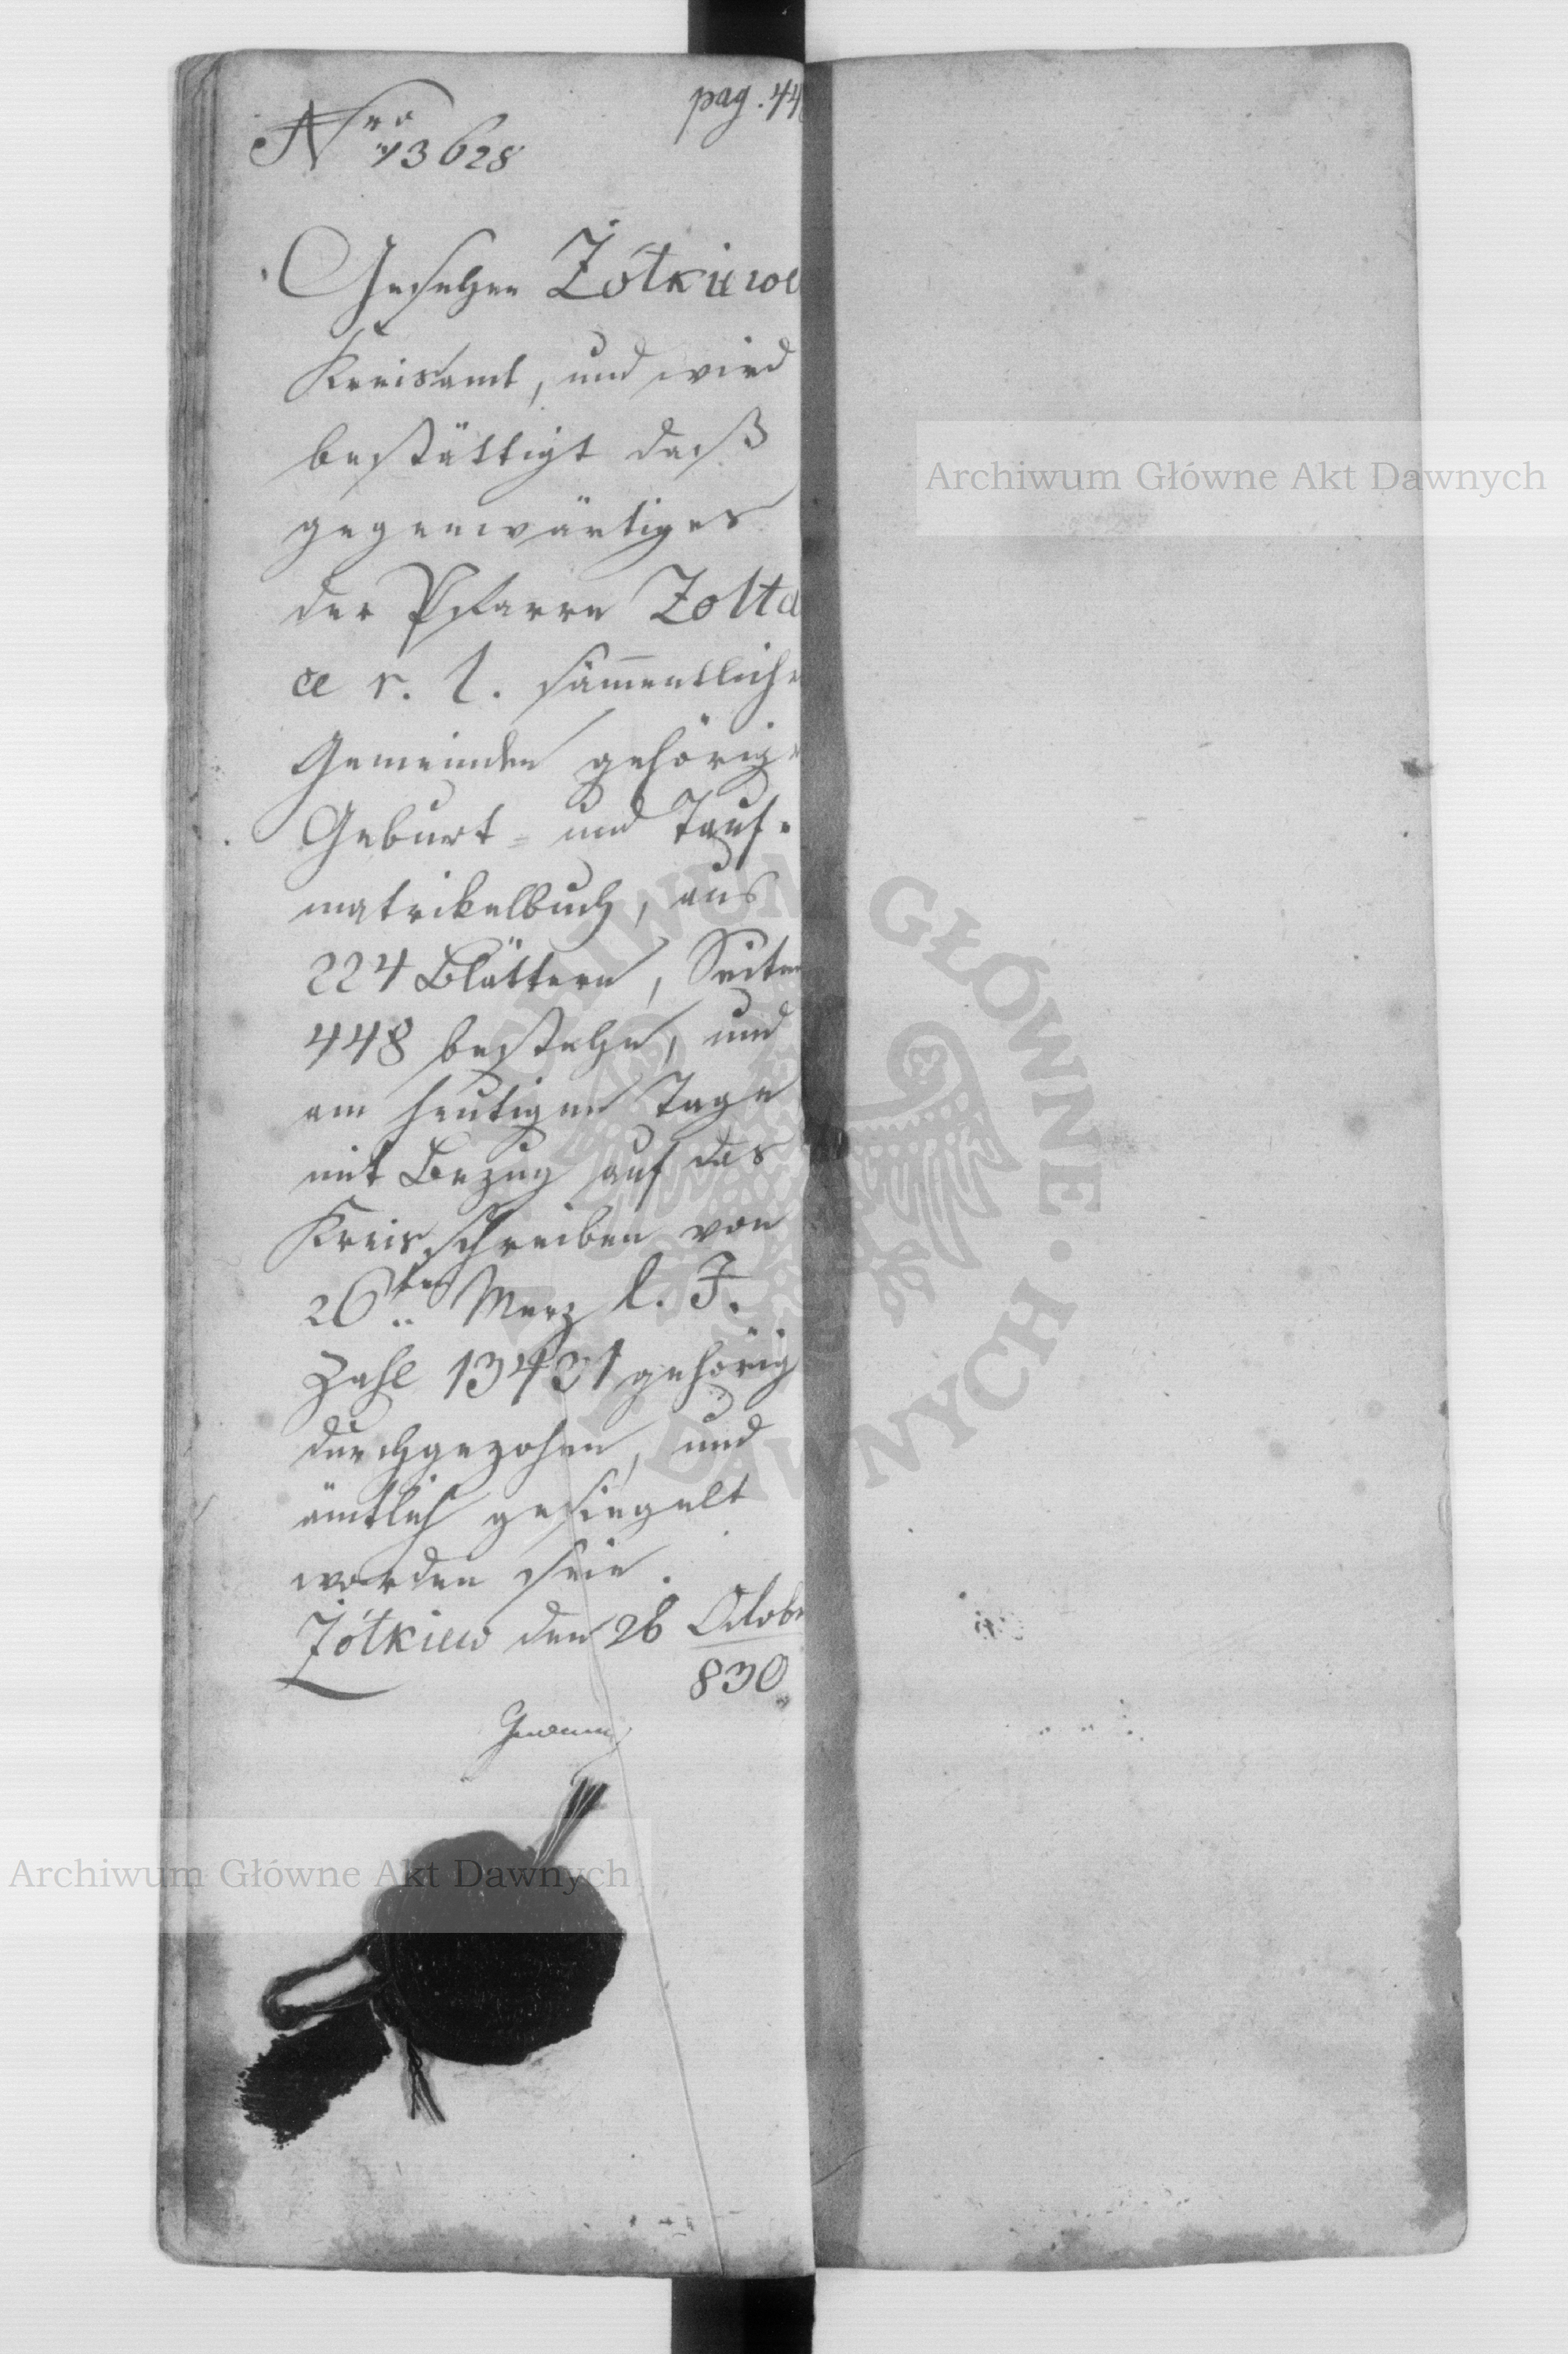 pag. 44
Nro 13628
Gesehen Żółkiewe
Kreisamt, und wird
bestättigt daß
gegenwärtiges
der Pfarre Zolta
ce r. l. sämmentliche
Gemeinden gehörige
Geburt- und Tauf-
matrikelbuch, aus
224 Blättern, Seiten
448 bestehe, und
am heutigen Tage
mit Bezug auf das
Kreisschreiben von
26ten Merz l. J.
Zahl 13431 gehörig
durchgezohen, und
ämtlich gesiegelt
worden seie.
Żółkiew den 26 Octobr
830
Archiwum Główne Akt Dawnych
Archiwum Główne Akt Dawnych
ARCHIWUM GŁÓWNE AKT DAWNYCH